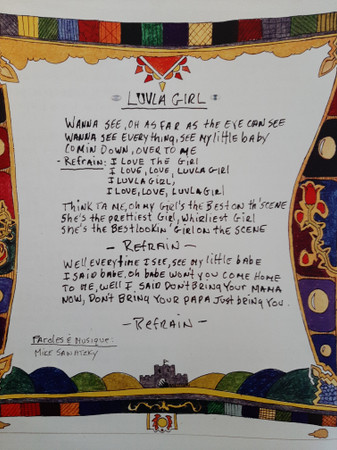 LUVLA GIRL
WANNA SEE, OH AS FAR AS the EYE CAN SEE
WANNA SEE EVERYTHING, SEE My little baby
COMIN DOWN, OVER TO ME
- Refrain: I LOVE THE GIRL
I LOVE, LOVE, LUVLA GIRL
I LUVLA GIRL,
I LOVE, LOVE, LUVLA GIRL
THINK TA ME, OH MY GIRL'S THE BEST ON th' SCENE
She's THE PRETTIEST GIRL, WHIRLIEST GIRL
SHE'S THE BEST LOOKIN' GIRL ON THE SCENE
- REFRAIN -
WELL EVERYTIME I SEE, SEE MY little babe
I SAID BABE, OH BABE WON'T YOU COME HOME
TO ME, WELL I, SAID DON'T BRING YOUR MAMA
NOW, DON'T BRING YOUR PAPA JUST bRING YOU.
- REFRAIN -
PAROLES & MUSIQUE:
MIKE